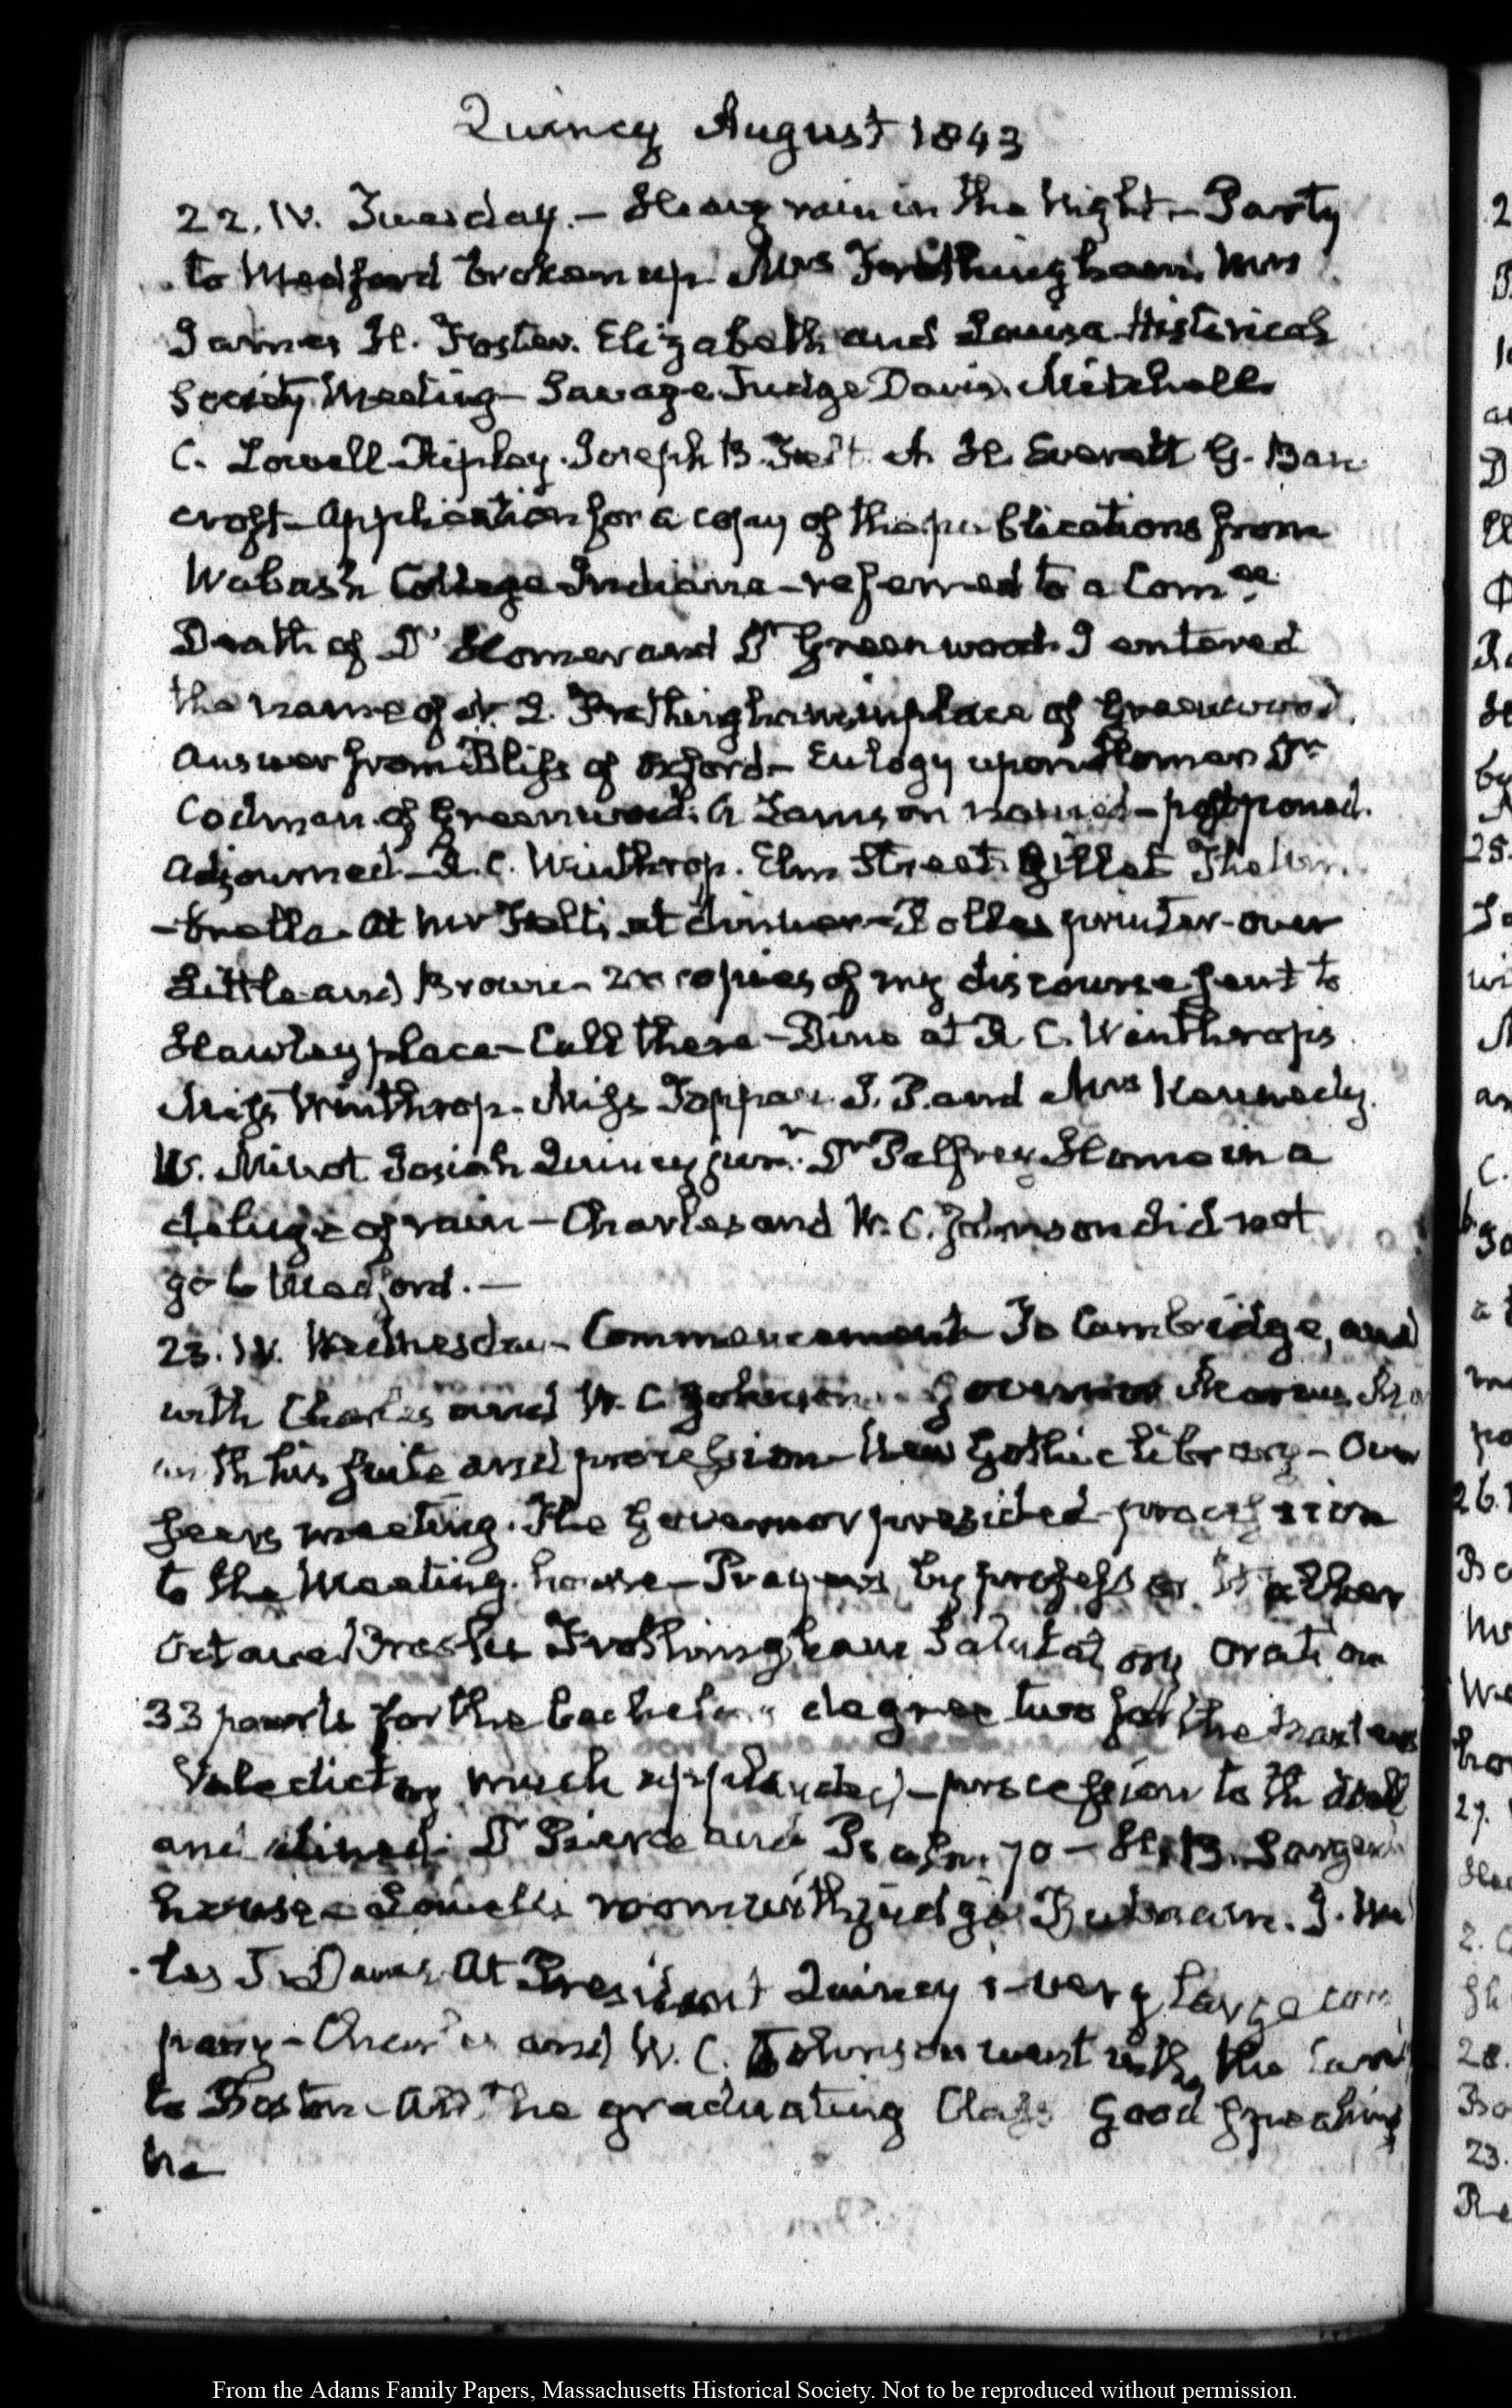 Quincy August 1843
22. IV. Tuesday. – Heavy rain in the Night – Party
to Medford broken up. Mrs Frothingham. Mrs
James H. Foster. Elizabeth and Louisa. Historical
Society Meeting – Savage. Judge Davis. Mitchell
C. Lowell. Ripley. Joseph B. Felt. A. H. Everett G. Ban
croft – Application for a copy of the publications from
Wabash College Indiana – referred to a Comee.
Death of Dr Homer and Dr Greenwood. I entered
the name of N. L. Frothingham in place of Greenwood.
Answer from Bliss of Oxford – Eulogy upon Homer Dr
Codman of Greenwood. A Lamson named – postponed.
Adjourned – R. C. Winthrop. Elm Street.
-brella. At Mr Felt's at dinner – printer – over
Little and Brown – 200 copies of my discourse sent to
Hawley place – Call there – Dine at R. C. Winthrop's
Miss Winthrop. Miss Tappan J. P. and Mrs Kennedy.
W. Minot Josiah Quincy junr. Dr Palfrey. Home in a
deluge of rain – Charles and W. C. Johnson did not
go to Medford. –
23. IV. Wednesday – Commencement To Cambridge, and
with Charles and W. C. Johnson. Governor Marcus Mo
with his suite and procession – New Gothic library – Over
seers meeting. The Governor presided procession
to the Meeting house – Prayers by professor
Octavius Brooks Frothingham Salutatory oration
33 parts for the bachelors degree two for the masters
Valedictory much applauded – procession to the Hall
and dined. Dr Pierce and Psalm. 70 –
house – Lowell's room with judge Putnam.
J. Davis. At President Quincy's – very large com
pany – Charles and W. C. Johnson went with the
to Boston – All the graduating Class good speaking
he
From the Adams Family Papers, Massachusetts Historical Society. Not to be reproduced without permission.